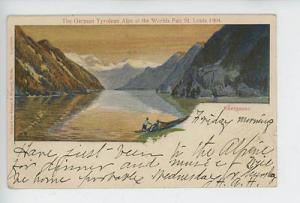 The German Tyrolean Alps at the Worlds Fair St. Louis 1904.
Königssee
Friday morning
Have just been to the Alpine
for dinner and music of
Be home probably Wednesday or Thursday